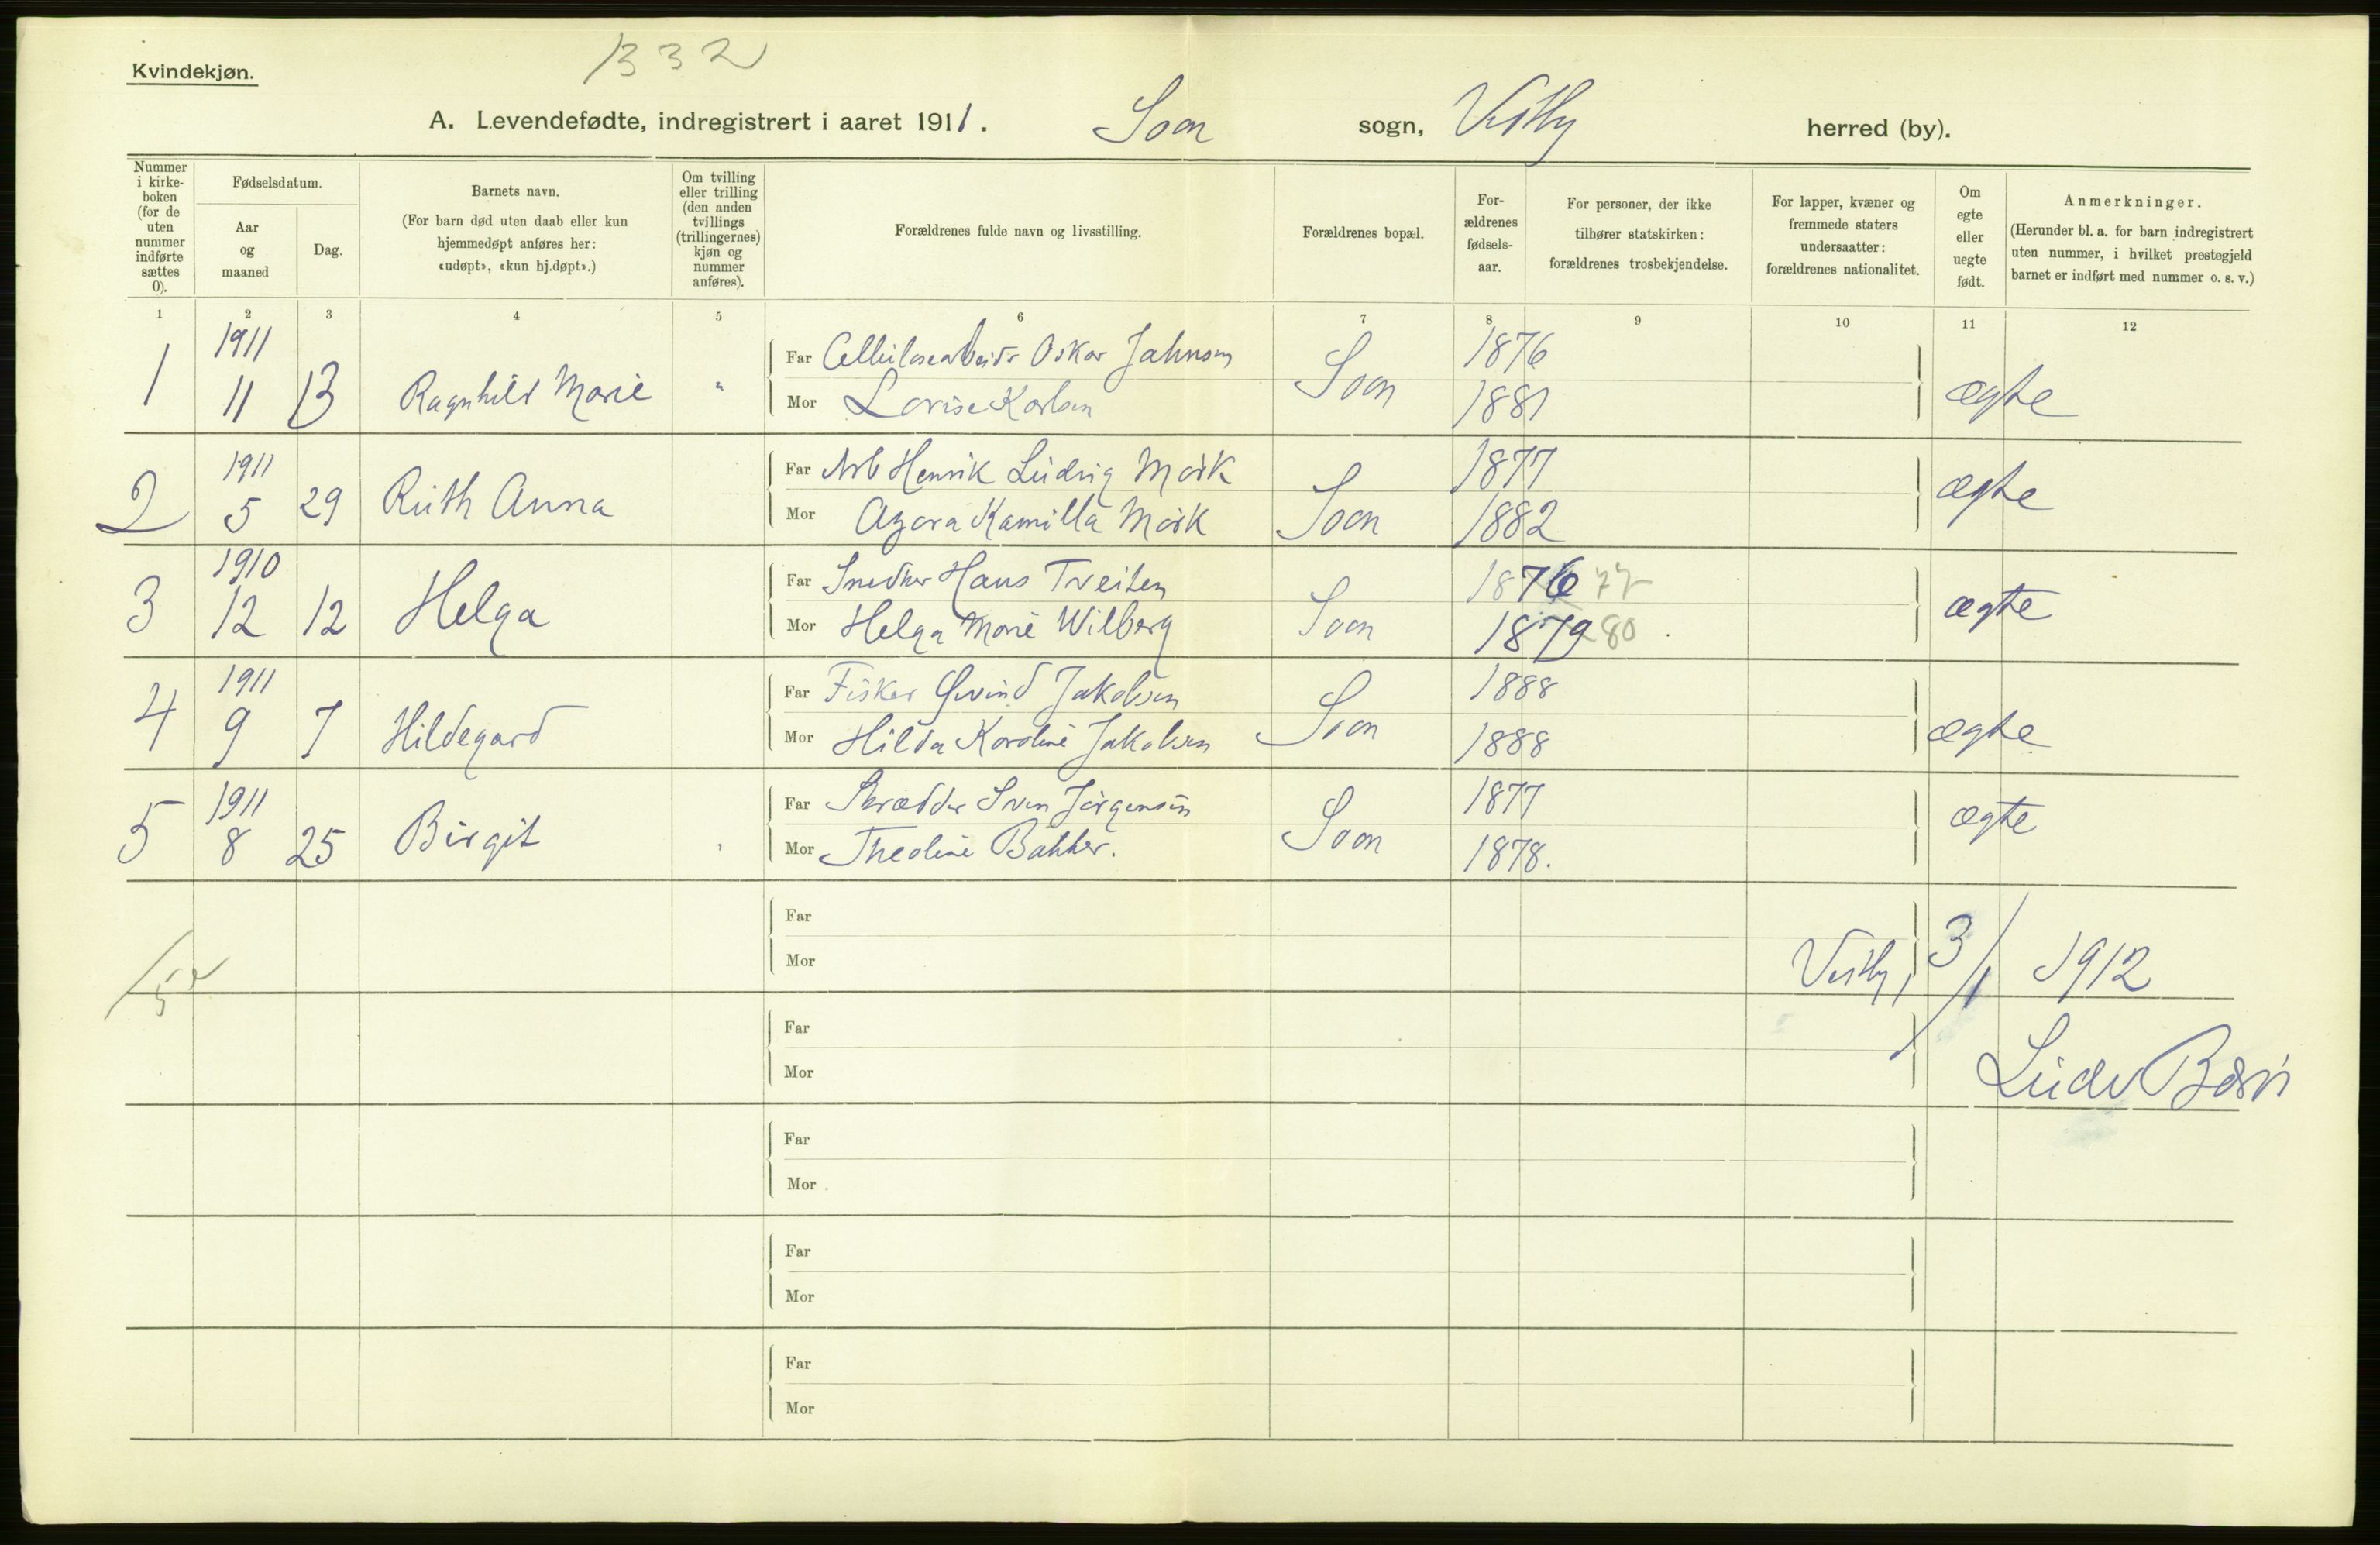 Kvindekjøn.
1332
A. Levendefødte, indregistrert i aaret 1911. Soon sogn, Vestby herred (by).
Nummer i kirke-boken (for de uten nummer indførte sættes 0).
Fødselsdatum.
Aar og maaned
Dag.
Barnets navn.
(For barn død uten daab eller kun hjemmedøpt anføres her: «udøpt», «kun hj.døpt».)
Om tvilling eller trilling (den anden tvillings (trillingernes) kjøn og nummer anføres).
Forældrenes fulde navn og livsstilling.
Forældrenes bopæl.
For-ældrenes fødsels-aar.
For personer, der ikke tilhører statskirken: forældrenes trosbekjendelse.
For lapper, kvæner og fremmede staters undersaatter: forældrenes nationalitet.
Om egte eller uegte født.
Anmerkninger.
(Herunder bl. a. for barn indregistrert uten nummer, i hvilket prestegjeld barnet er indført med nummer o. s. v.)
1 2 3 4 5 6 7 8 9 10 11 12
1911 Far Cellulosearbeidr Oskar Jahnsen 1876
1 11 13 Ragnhild Marie " Mor Lovise Karlsen Soon 1881 ægte
1911 Far Arb Henrik Ludvig Mörk 1877
2 5 29 Ruth Anna Mor Agora Kamilla Mörk Soon 1882 ægte
1910 Far Snedker Hans Treiten 1876 77
3 12 12 Helga Mor Helga Marie Wilberg Soon 1879 80 ægte
1911 Far Fisker Øivind Jakobsen 1888
4 9 7 Hildegard Mor Hilda Karoline Jakobsen Soon 1888 ægte
1911 Far Skrædder Sven Jörgensen 1877
5 8 25 Birgit Mor Theoline Bakker. Soon 1878. ægte
Far
Mor
Vestby, 3/1 1912
Far
Mor
Ludv
Far
Mor
Far
Mor
Far
Mor